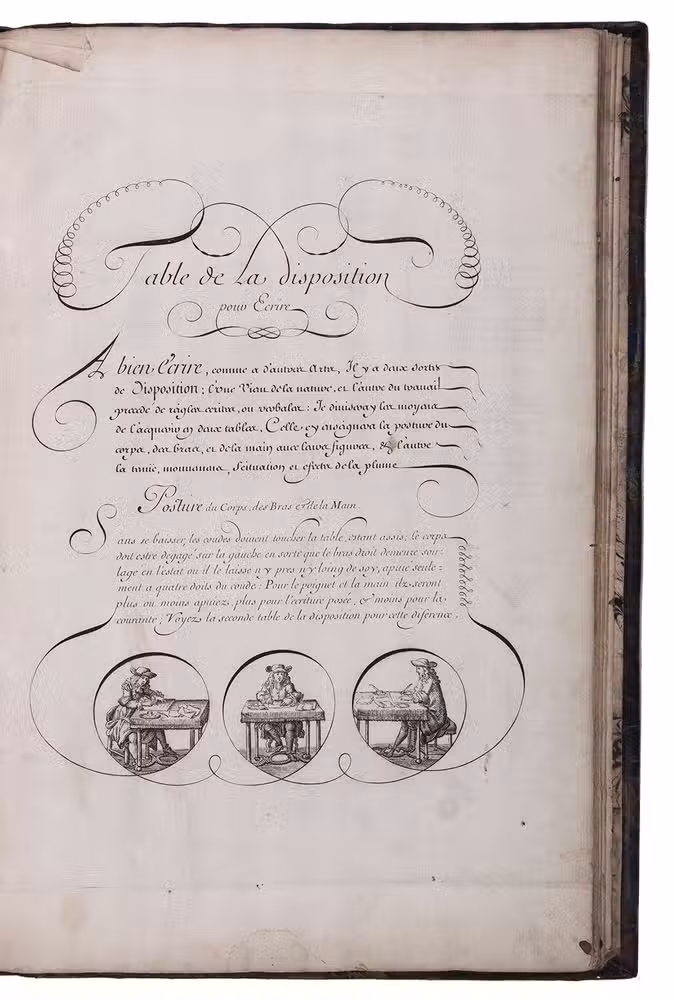 Table de La disposition
pour Ecrire
A bien Ecrire, comme a d'autres Arts, Il y a deux sortes
de Disposition; l'vne Vient de la nature, et l'autre du travail
precede de regles ecrites, ou verbales: Je diviseray les moyens
de l'acquerir en deux tables, Celle cy enseignera la posture du
corps, des bras, et de la main avec leurs figures, & l'autre
la tenüe, mouvemens, scituation et efects de la plume
Posture du Corps, des Bras et de la Main.
Sans se baisser, les coudes doivent toucher la table, estant assis; le corps
doit estre degagé sur la gauche en sorte que le bras droit demeure sou-
lagé en l'estat ou il le laisse n'y pres n'y loing de soy, apuié seule-
ment a quatre doits du coude: Pour le poignet et la main ilz seront
plus ou moins apuiez, plus pour l'ecriture posée, & moins pour la
courante, Voyez la seconde table de la disposition pour cette diference.